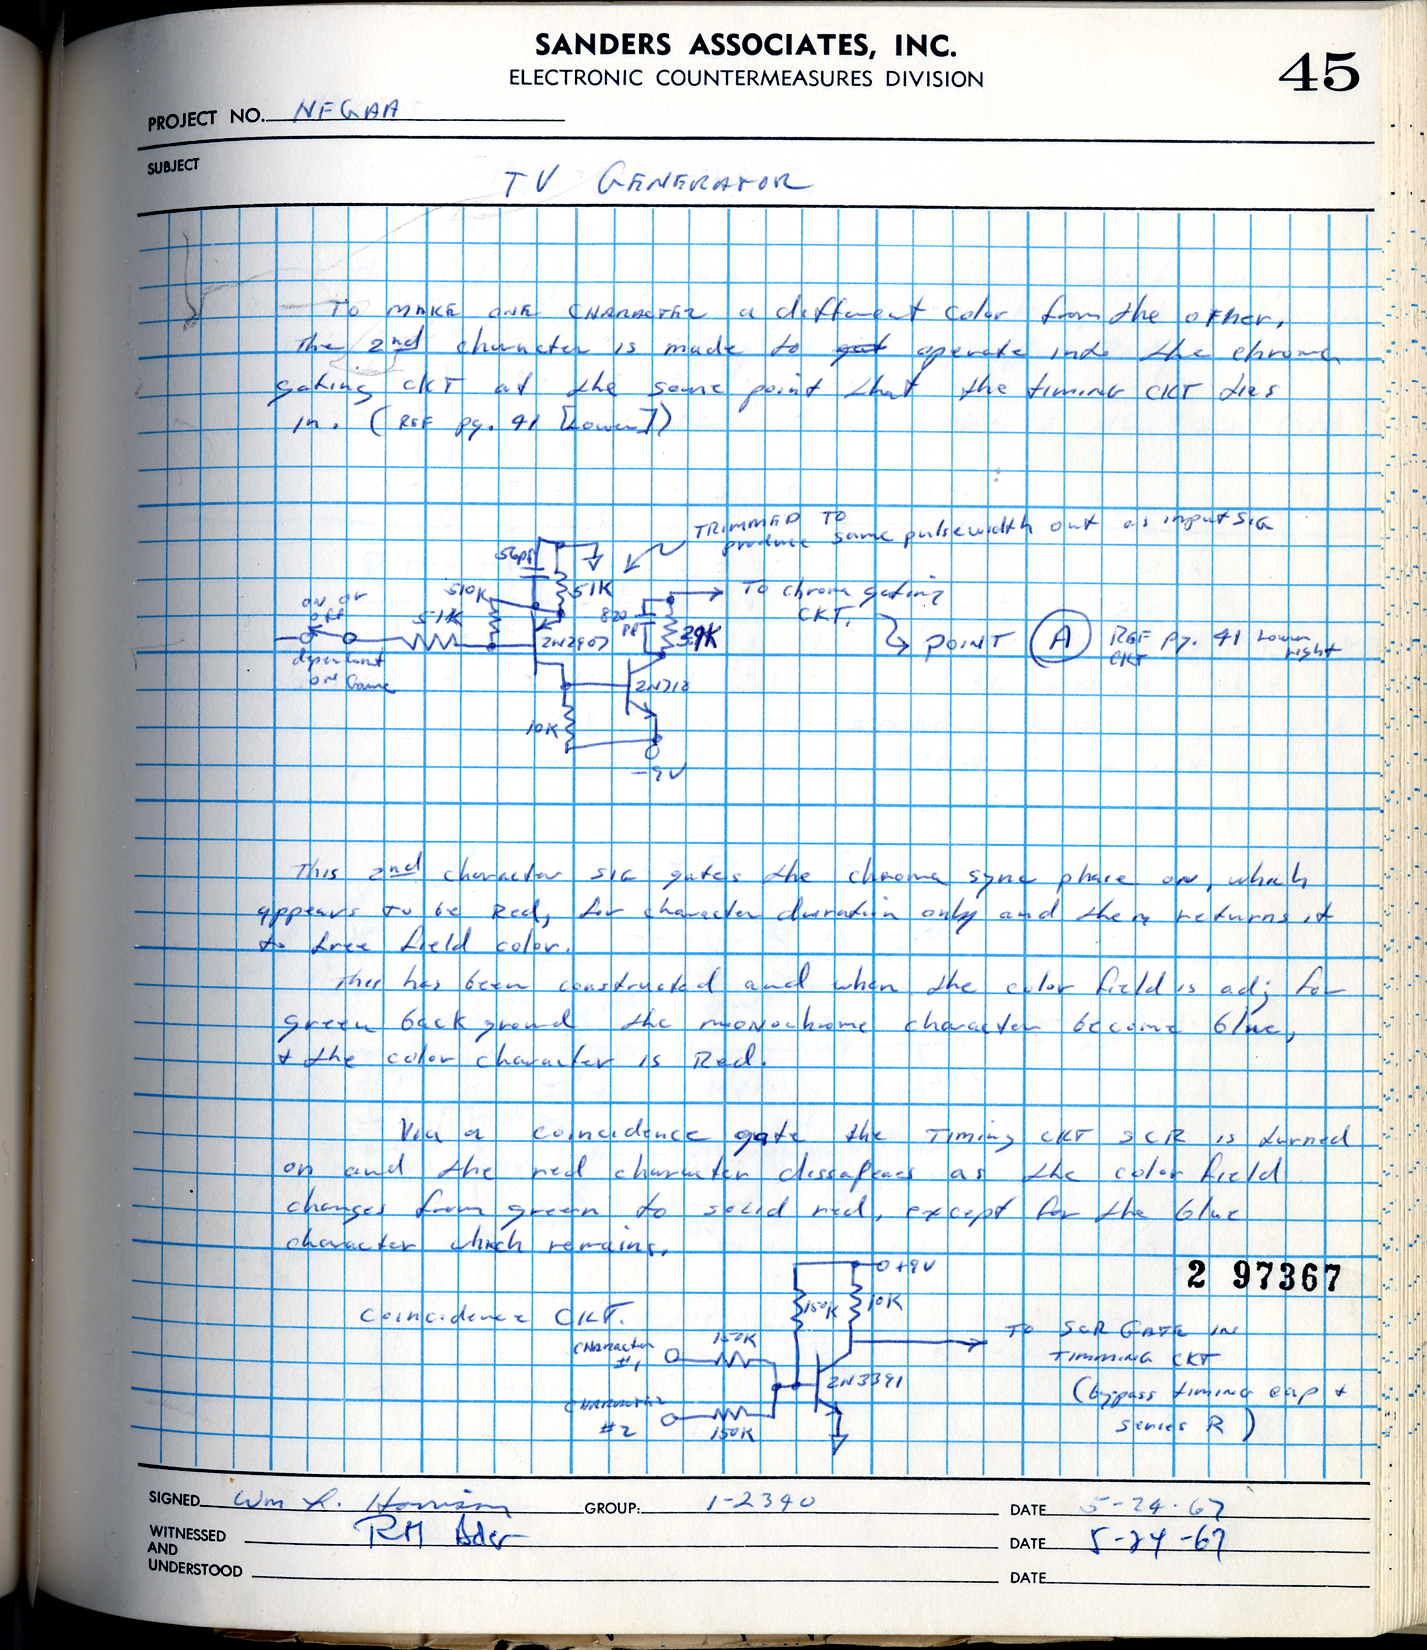 SANDERS ASSOCIATES, INC.
ELECTRONIC COUNTERMEASURES DIVISION
45
PROJECT NO. NFGAA
SUBJECT
TV GENERATOR
To MAKE ONE CHARACTER a different color from the other,
the 2nd character is made to operate into the chroma
gating CKT at the same point that the timing CKT ties
in. (REF pg. 41 [Lower])
TRIMMED TO
produce same pulsewidth out as input SIG
56pf
510K
51K
on or
off
51K
820
pf
39K
To chroma gating
CKT.
POINT A REF pg. 41 Lower
CKT right
2N2907
dependant
on Game
2N718
10K
-9V
This 2nd character SIG gates the chroma sync phase on, which
appears to be Red, for character duration only and then returns it
to free field color.
This has been constructed and when the color field is adj for
green back ground the monochrome character become blue,
+ the color character is Red.
Via a coincidence gate the Timing CKT SCR is turned
on and the red character dissapears as the color field
changes from green to solid red, except for the blue
character which remains.
2 97367
+9V
150K
10K
Coincidence CKT.
CHARACTER
#1
150K
TO SCR GATE IN
TIMMING CKT
2N3391
(bypass timing cap +
series R)
CHARACTER
#2
150K
SIGNED Wm L. Harrison GROUP: 1-2340 DATE 5-24-67
WITNESSED
AND
UNDERSTOOD
DATE 5-24-67
DATE